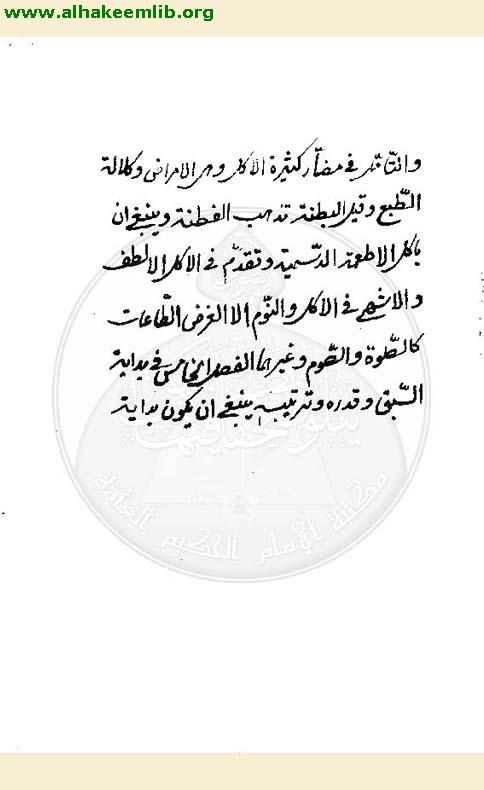 www.alhakeemlib.org
والتأمل في مضار كثيرة الاكل وهي الامراض وكلالة
الطبع وقيل البطنة تذهب الفطنة وينبغي ان
ياكل الاطعمة الدسمية وتقدم في الاكل الالطف
والاشهى في الاكل والنوم الا لغرض الطاعات
كالصلوة والصوم وغيرهما الفصل الخامس في بداية
السبق وقدره وترتيبه ينبغي ان يكون بداية
مكتبة الإمام الحكيم العامة